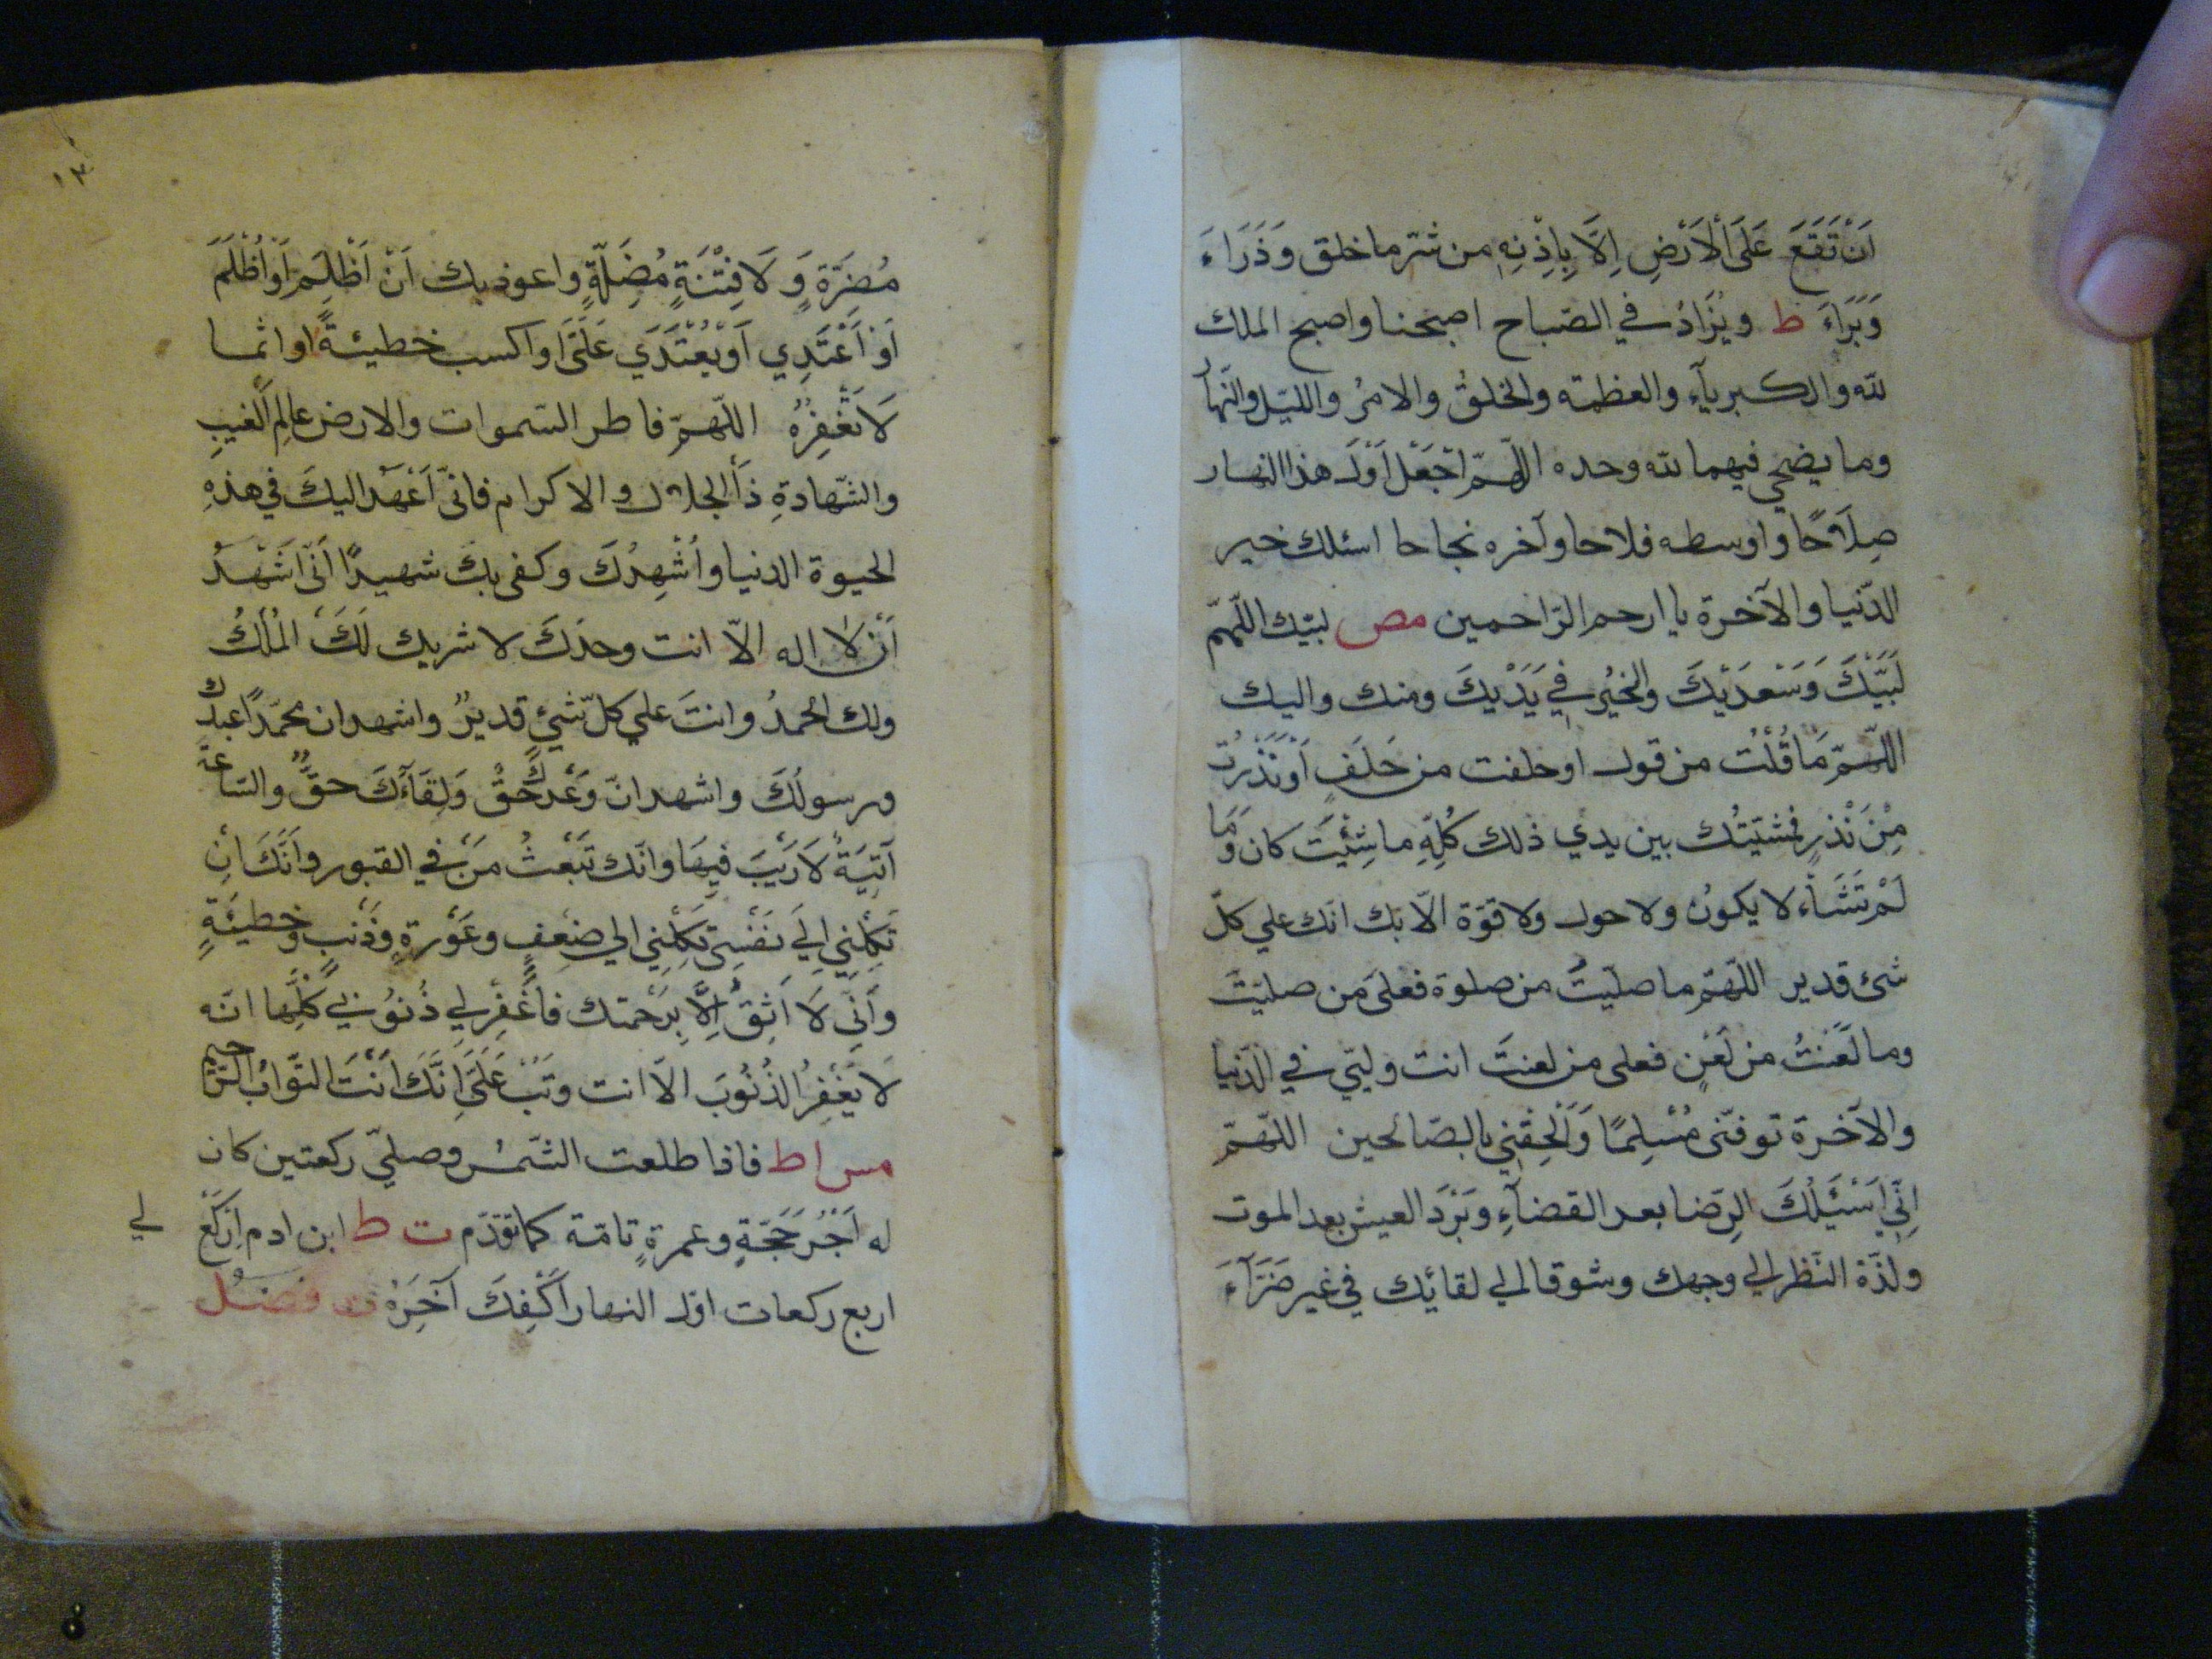 اَنْ تَقَعَ عَلَى الْاَرْضِ اِلَّا بِاِذْنِهِ من شرّ ما خلق وَذَرَاءَ
وَبَرَاءَ ط ويُزَادُ في الصّباح اصبحنا واصبح الملك
لله والكبرياء والعظمة والخلقُ والامرُ والليل والنّهار
وما يضحي فيهما لله وحده اللّهمّ اجْعَلْ اَوّلَ هذا النهار
صِلَاحًا واوسطه فلاحا وآخره نجاحا اسئلك خير
الدّنيا والآخرة يا ارحم الرّاحمين مص لبّيك اللّهمّ
لَبَّيْكَ وَسَعْدَيْكَ والخيرُ في يَدَيْكَ ومنك واليك
اللّهمّ مَا قُلْتُ من قول او حلفت من حَلَفٍ اَوْ نَذَرْتُ
مِنْ نَذْرٍ فمشيّتك بين يدي ذلك كُلِّهِ ما شِئْتَ كان وَمَا
لَمْ تَشَاء لا يكونُ ولا حول ولا قوّة الّا بك انّك علي كلّ
شئ قدير اللّهمّ ما صلّيتُ من صلوة فعلى مَن صلّيتَ
وما لَعَنْتُ من لَعْنٍ فعلى من لعنتَ انت وليّي في الدّنيا
والآخرة توفّنى مُسْلِمًا وَاَلْحِقْنِي بالصّالحين اللّهمّ
اِنِّي اَسْئَلُكَ الرّضا بعد القضاءِ وبَرْدَ العيش بعد الموت
ولذّة النّظر الي وجهك وشوقا الي لقائك في غير ضَرَّاءَ
١٣
مُضِرَّةٍ وَلَا فِتْنَةٍ مُضِلَّةٍ واعوذ بك اَنْ اَظْلِمَ اَوْ اُظْلَمَ
اَوْ اَعْتَدِي اَوْ يُعْتَدَي عَلَيَّ او اكسب خطيئةً او اثما
لَا تَغْفِرُهُ اللّهمّ فاطر السّموات والارض عالِم الغيبِ
والشّهادةِ ذَا الجلال والاكرام فانّى اَعْهَدُ اليكَ في هذه
الحيوة الدنيا واُشْهِدُكَ وكفى بكَ شهيدًا اَنّى اَشْهَدُ
اَنْ لا اله الّا انت وحدَكَ لا شريك لَكَ لَكَ المُلْكُ
ولك الحمدُ وانتَ علي كلّ شئٍ قديرٌ واشهد ان محمّدًا عبدك
ورسولُكَ واشهد انّ وَعْدَكَ حَقٌّ وَلِقَاءَكَ حقٌّ والسّاعة
آتِيَةٌ لَا رَيْبَ فِيهَا وانّك تَبْعَثُ مَنْ في القبور وانّكَ اِنْ
تَكِلْنِي اِلَي نَفْسِي تَكِلْنِي الي ضَعْفٍ وعَوْرةٍ وذَنبٍ وخطيئَةٍ
وَاَنِّي لَا اَثِقُ اِلَّا بِرَحْمَتك فاغْفِرْلِي ذُنُوبِي كُلّهَا انّه
لَا يَغْفِرُ الذُنُوبَ الّا انت وتُبْ عَلَيَّ اِنَّكَ اَنْتَ التوّابُ الرّحيم
مس ا ط فاذا طلعت الشّمسُ وصلّي ركعتين كان
له اَجْرُ حَجّةٍ وعمرةٍ تامّة كما تقدّم ت ط ابن ادم اِرْكَعْ لي
اربع ركعات اوّل النهار اَكْفِكَ آخِرَهُ فصل